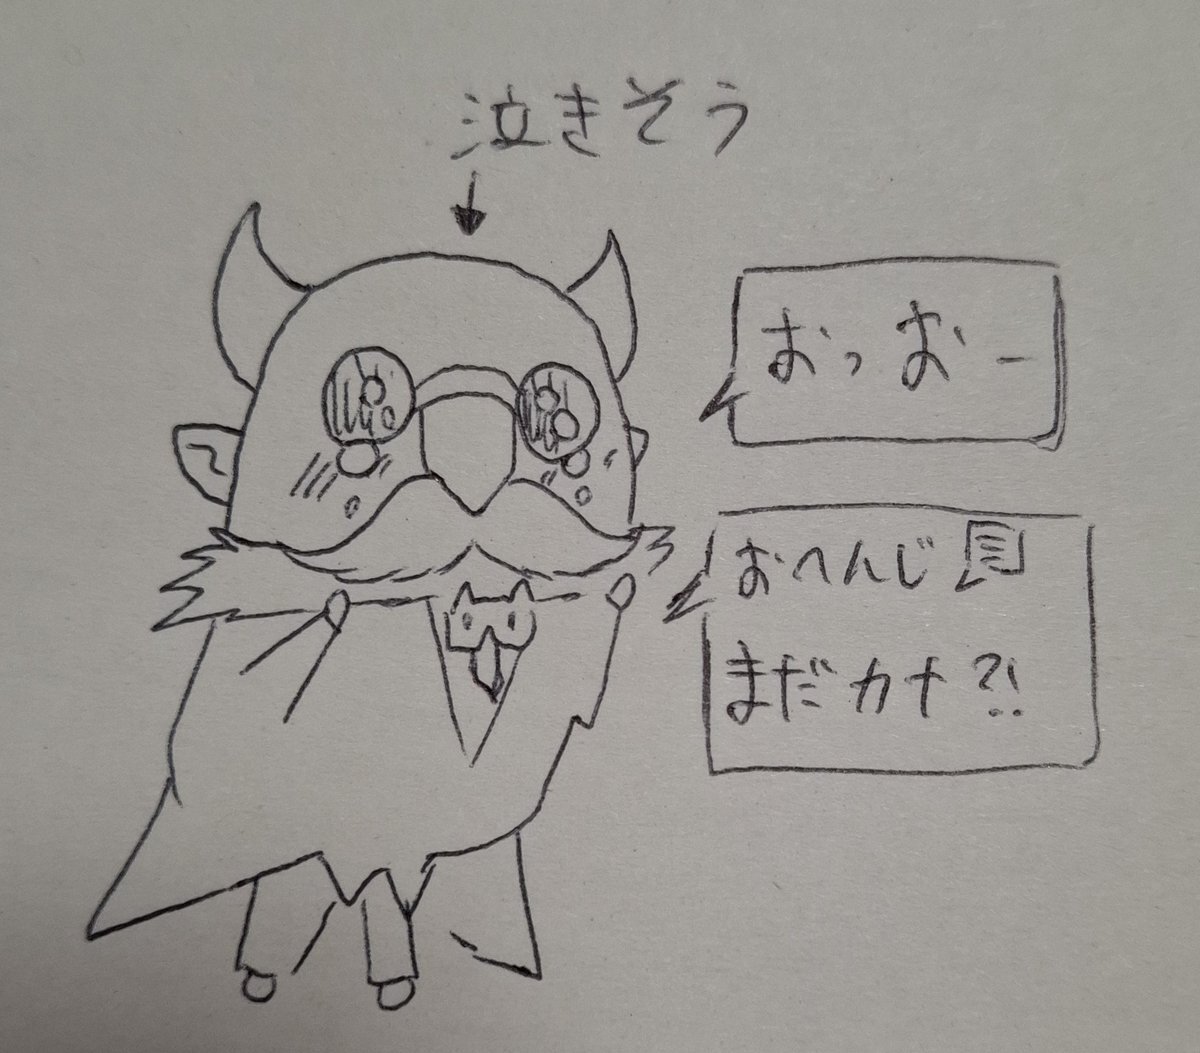 泣きそう
おっおー
おへんじ
まだカナ?!